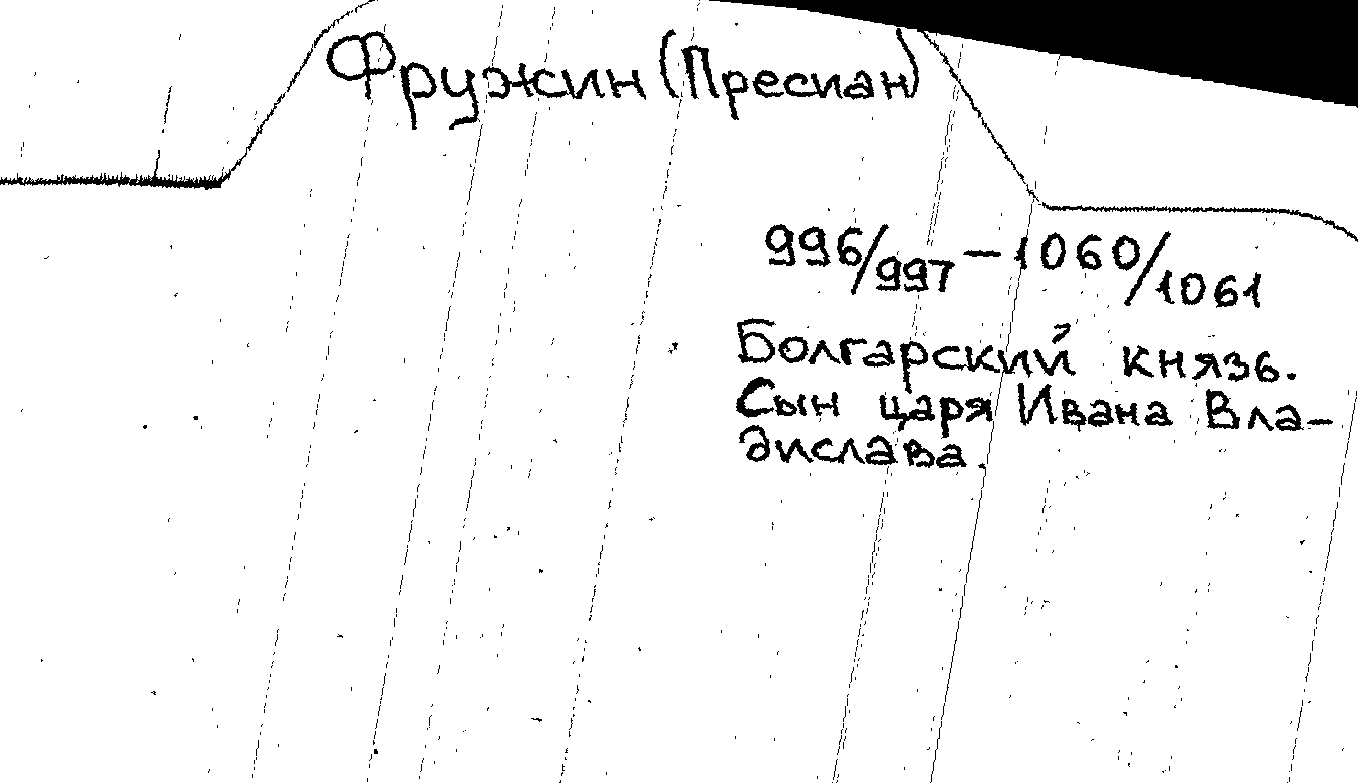 Фружин (Пресиан)
996/997 – 1060/1061
Болгарский князь.
Сын царя Ивана Вла-
дислава.